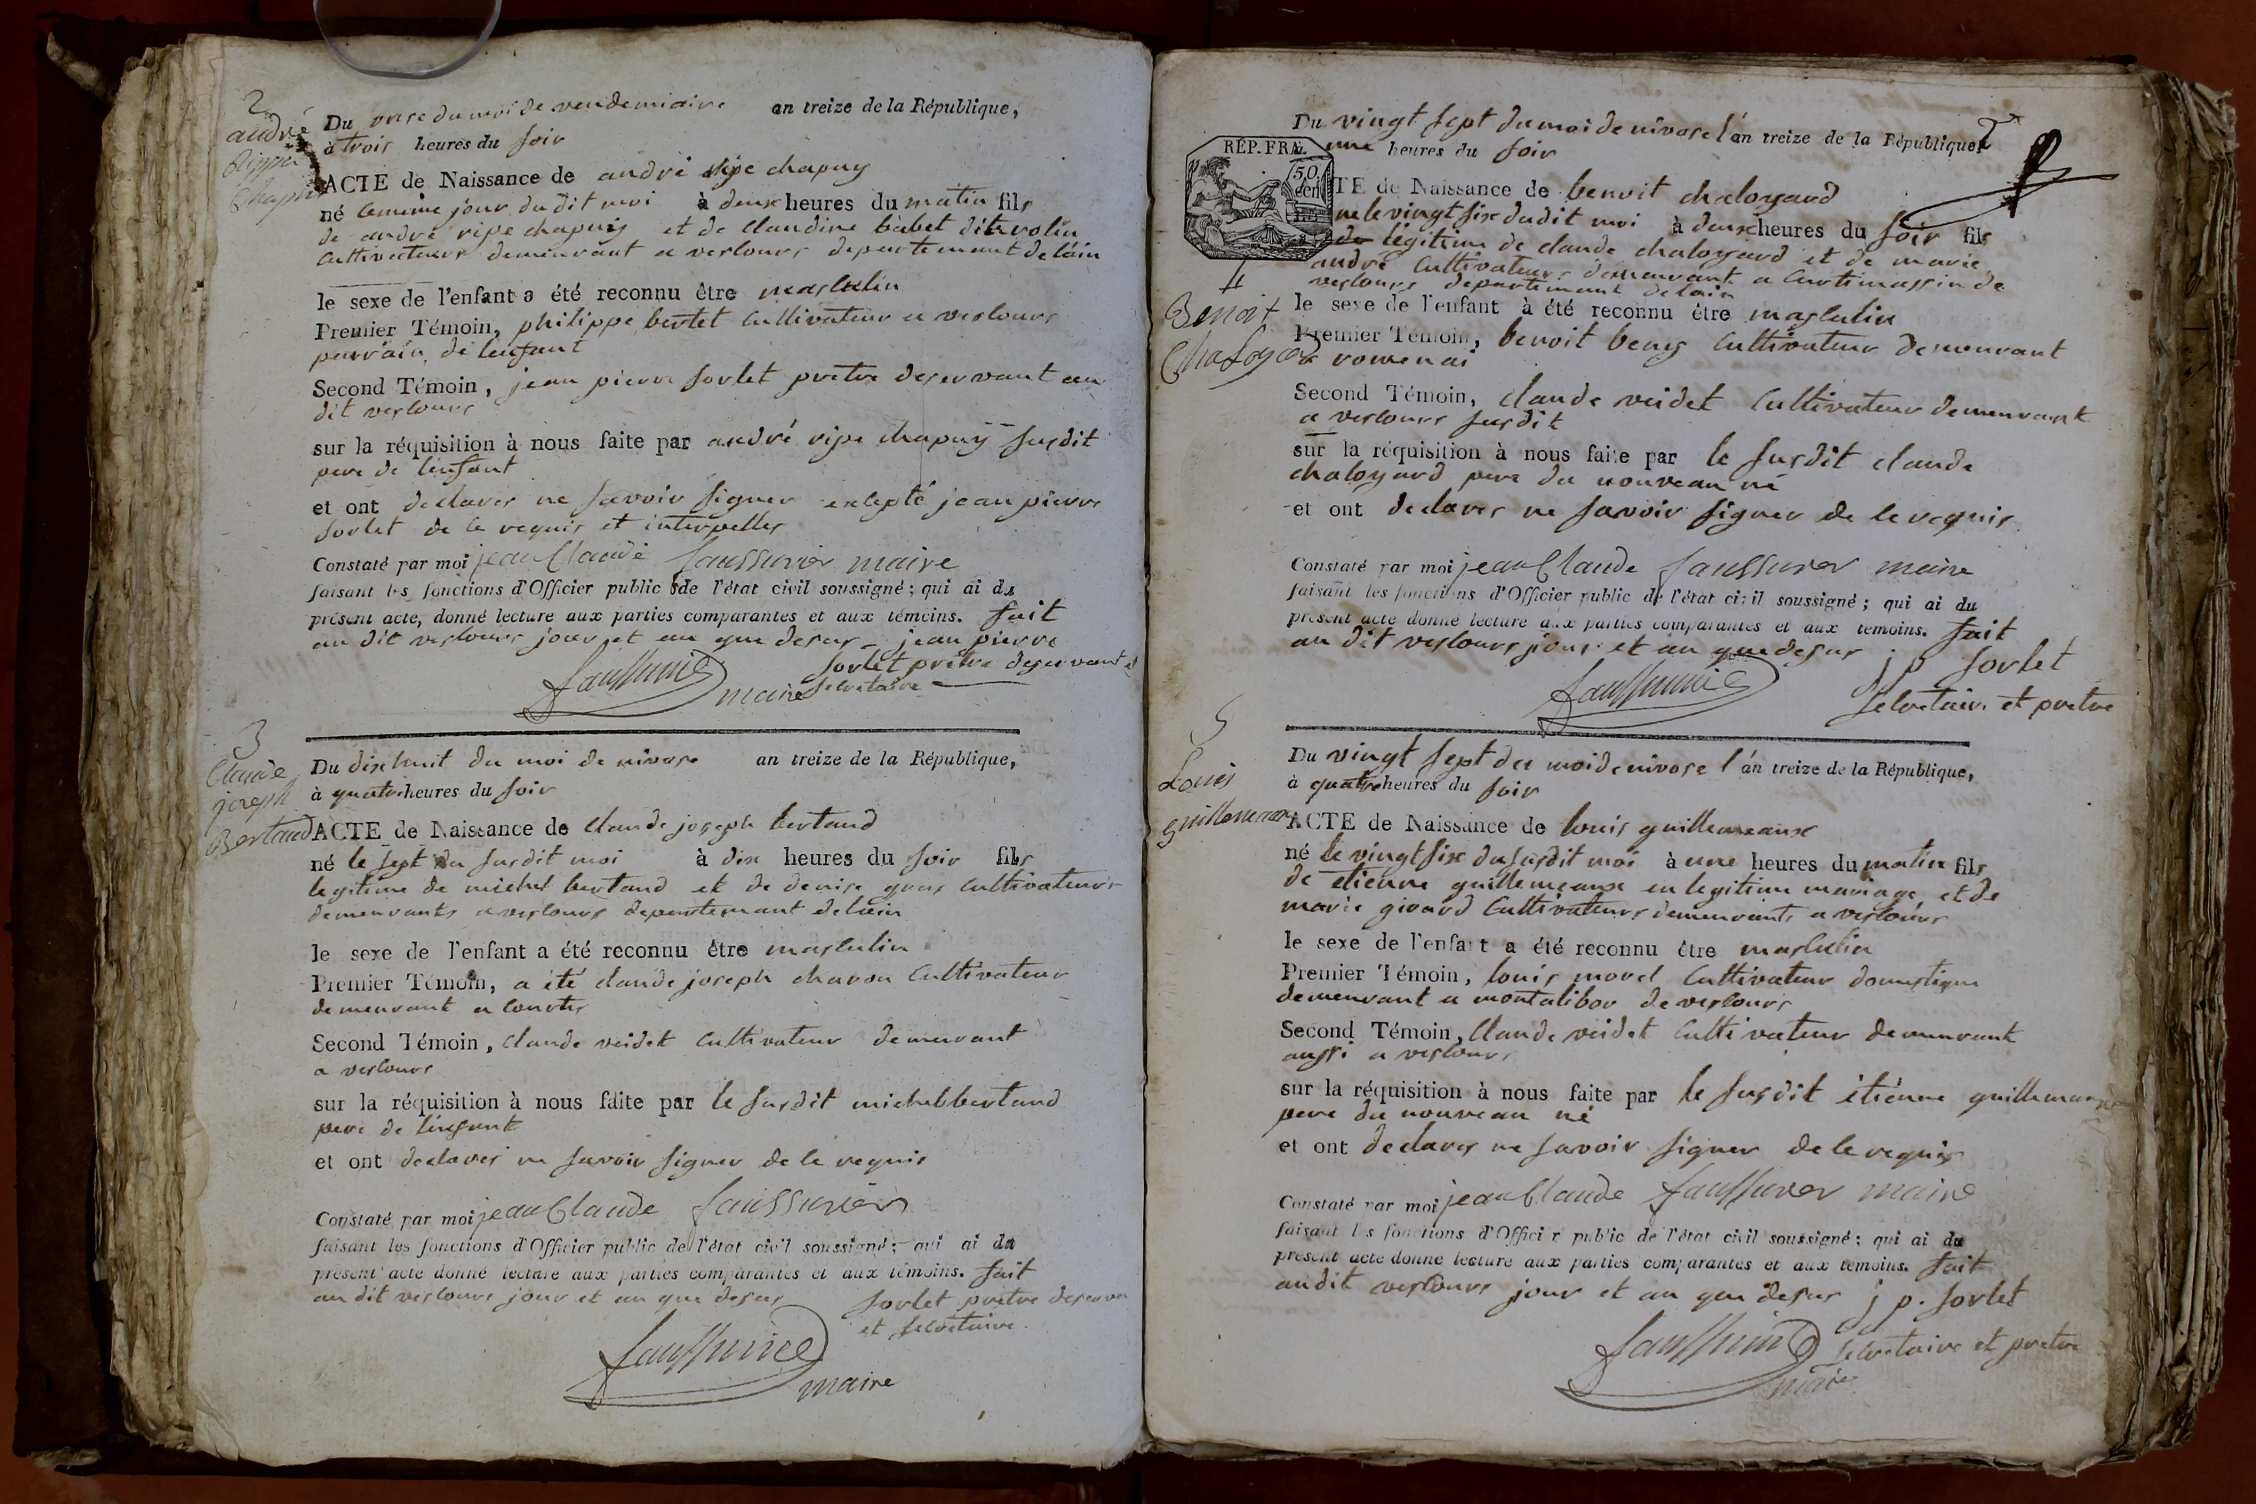 2
andré
Rippe
Chapuis
Du onse du moi de vendemiaire an treize de la République,
à trois heures du soir
ACTE de Naissance de andré ripe chapuy
né le meme jour du dit moi à deux heures du matin fils
de andré ripe chapuis et de claudine babet dit
cultivateurs demeurant a verlours departement de lain
le sexe de l'enfant a été reconnu être masculin
Premier Témoin, philippe bertet cultivateur a verlours
parrain de lenfant
Second Témoin, jean pierre sorlet pretre deservant au
dit verlours
sur la réquisition à nous faite par andré ripe chapuy susdit
pere de lenfant
et ont declares ne savoir signer excepté jean pierre
sorlet de ce requis et interpelles
Constaté par moi jean Claude saussurier maire
faisant les fonctions d'Officier public de l'état civil soussigné; qui ai du
présent acte, donné lecture aux parties comparantes et aux témoins. fait
au dit verlours jour et an que desus jean pierre
sorlet pretre deservant et
maire secretaire
3
Claude
joseph
Bertand
Du dixhuit du moi de nivose an treize de la République,
à quatre heures du soir
ACTE de Naissance de claude joseph bertand
né le sept du susdit moi à dix heures du soir fils
legitime de michel bertand et de denise gras cultivateurs
demeurants a verlours departemant de lain
le sexe de l'enfant a été reconnu être masculin
Premier Témoin, a été claude joseph chavon cultivateur
demeurant a courtes
Second Témoin, claude veidet cultivateur demeurant
a verlours
sur la réquisition à nous faite par le susdit michel bertand
pere de lenfant
et ont declares ne savoir signer de ce requis
Constaté par moi jean Claude saussurier
faisant les fonctions d'Officier public de l'état civil soussigné; qui ai du
présent acte donné lecture aux parties comparantes et aux témoins. fait
au dit verlours jour et an que desus sorlet pretre
et secretaire
maire
RÉP. FRA.
50
cen
Du vingt sept du moi de nivose l'an treize de la République
une heures du soir
TE de Naissance de benoit chaloyard
né le vingt six dudit moi à deux heures du soir fils
legitime de claude chaloyard et de marie
andré cultivateurs demeurant a curtimassin de
verlours departemant delain
4
Benoit
Chaloyard
le sexe de l'enfant à été reconnu être masculin
Premier Témoin, benoit beny cultivateur demeurant
a romenai
Second Témoin, claude veidet cultivateur demeurant
a verlours susdit
sur la réquisition à nous faite par le susdit claude
chaloyard pere du nouveau né
et ont declares ne savoir signer de ce requis
Constaté par moi jean Claude saussurer maire
faisant les fonctions d'Officier public de l'état civil soussigné; qui ai du
présent acte donné lecture aux parties comparantes et aux témoins. fait
au dit verlours jour et an que desus j p sorlet
secretaire et pretre
5
Louis
guillemeaux
Du vingt sept du moi de nivose l'an treize de la République,
à quatre heures du soir
ACTE de Naissance de louis guillemeaux
né le vingt six du susdit moi à une heures du matin fils
de etienne guillemeaux en legitime mariage et de
marie girard cultivateurs demeurants a verlours
le sexe de l'enfant a été reconnu être masculin
Premier Témoin, louis morel cultivateur domestique
demeurant a montalibor de verlours
Second Témoin, claude veidet cultivateur demeurant
aussi a verlours
sur la réquisition à nous faite par le susdit étiénne guillemeaux
pere du nouveau né
et ont declares ne savoir signer de ce requis
Constaté par moi jean Claude saussurer maire
faisant les fonctions d'Officier public de l'état civil soussigné; qui ai du
présent acte donné lecture aux parties comparantes et aux témoins. fait
audit verlours jour et an que desus j p. sorlet
secretaire et pretre
maire